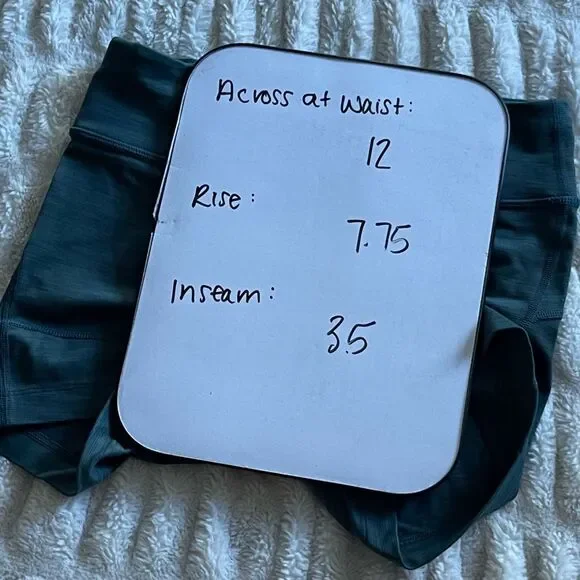 Across at Waist:
12
Rise:
7.75
Inseam:
3.5